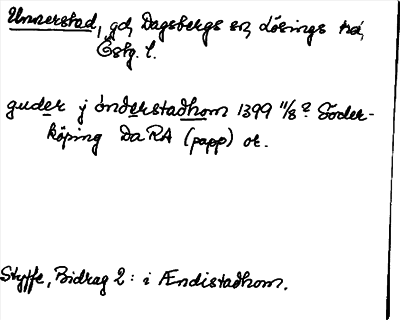 Unnerstad, gd, Dagsbergs sn, Lösings hd,
Östg. l.
guder j ónderstadhom 1399 11/8? Söder-
köping Da RA (papp) or.
Styffe, Bidrag 2: i Ændistadhom.